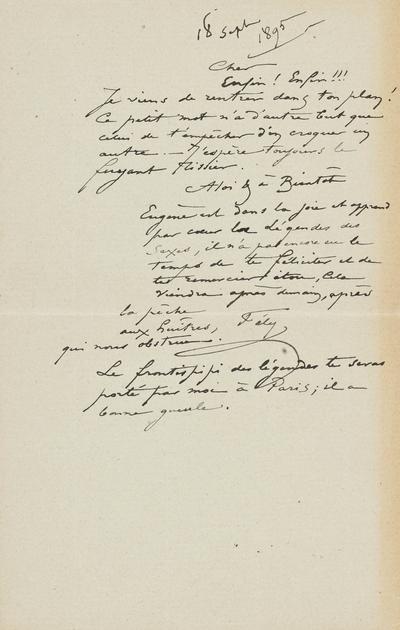 18 Sept 1895.
Cher
Enfin! Enfin!!!
Je viens de rentrer dans ton plan!
Ce petit mot n'a d'autre but que
celui de t'empêcher d'en croquer un
autre. — J'espère toujours le
fuyant Tissier.
à Bientôt
Eugène est dans la joie et apprend
par cœur les Légendes des
Sexes, il n'a pas encore eu le
temps de te féliciter et de
te remercier itou, Cela
viendra après demain, après
la pêche
aux huîtres, Fély
qui nous obstrue.
Le frontispipi des légendes te seras
porté par moi à Paris; il a
bonne gueule.